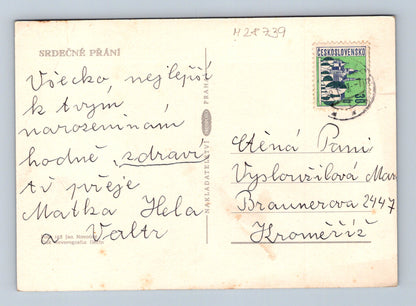 H28739
SRDEČNÉ PŘÁNÍ
Všecko, nejlepší
k tvým
narozeninám
hodně zdraví
ti přeje
Matka Hela
a Valtr
NAKLADATELSTVÍ
PRAHA
ČESKOSLOVENSKO
Ctěná Paní
Vysloužilová Mar
Braunerova 2447
Kroměříž